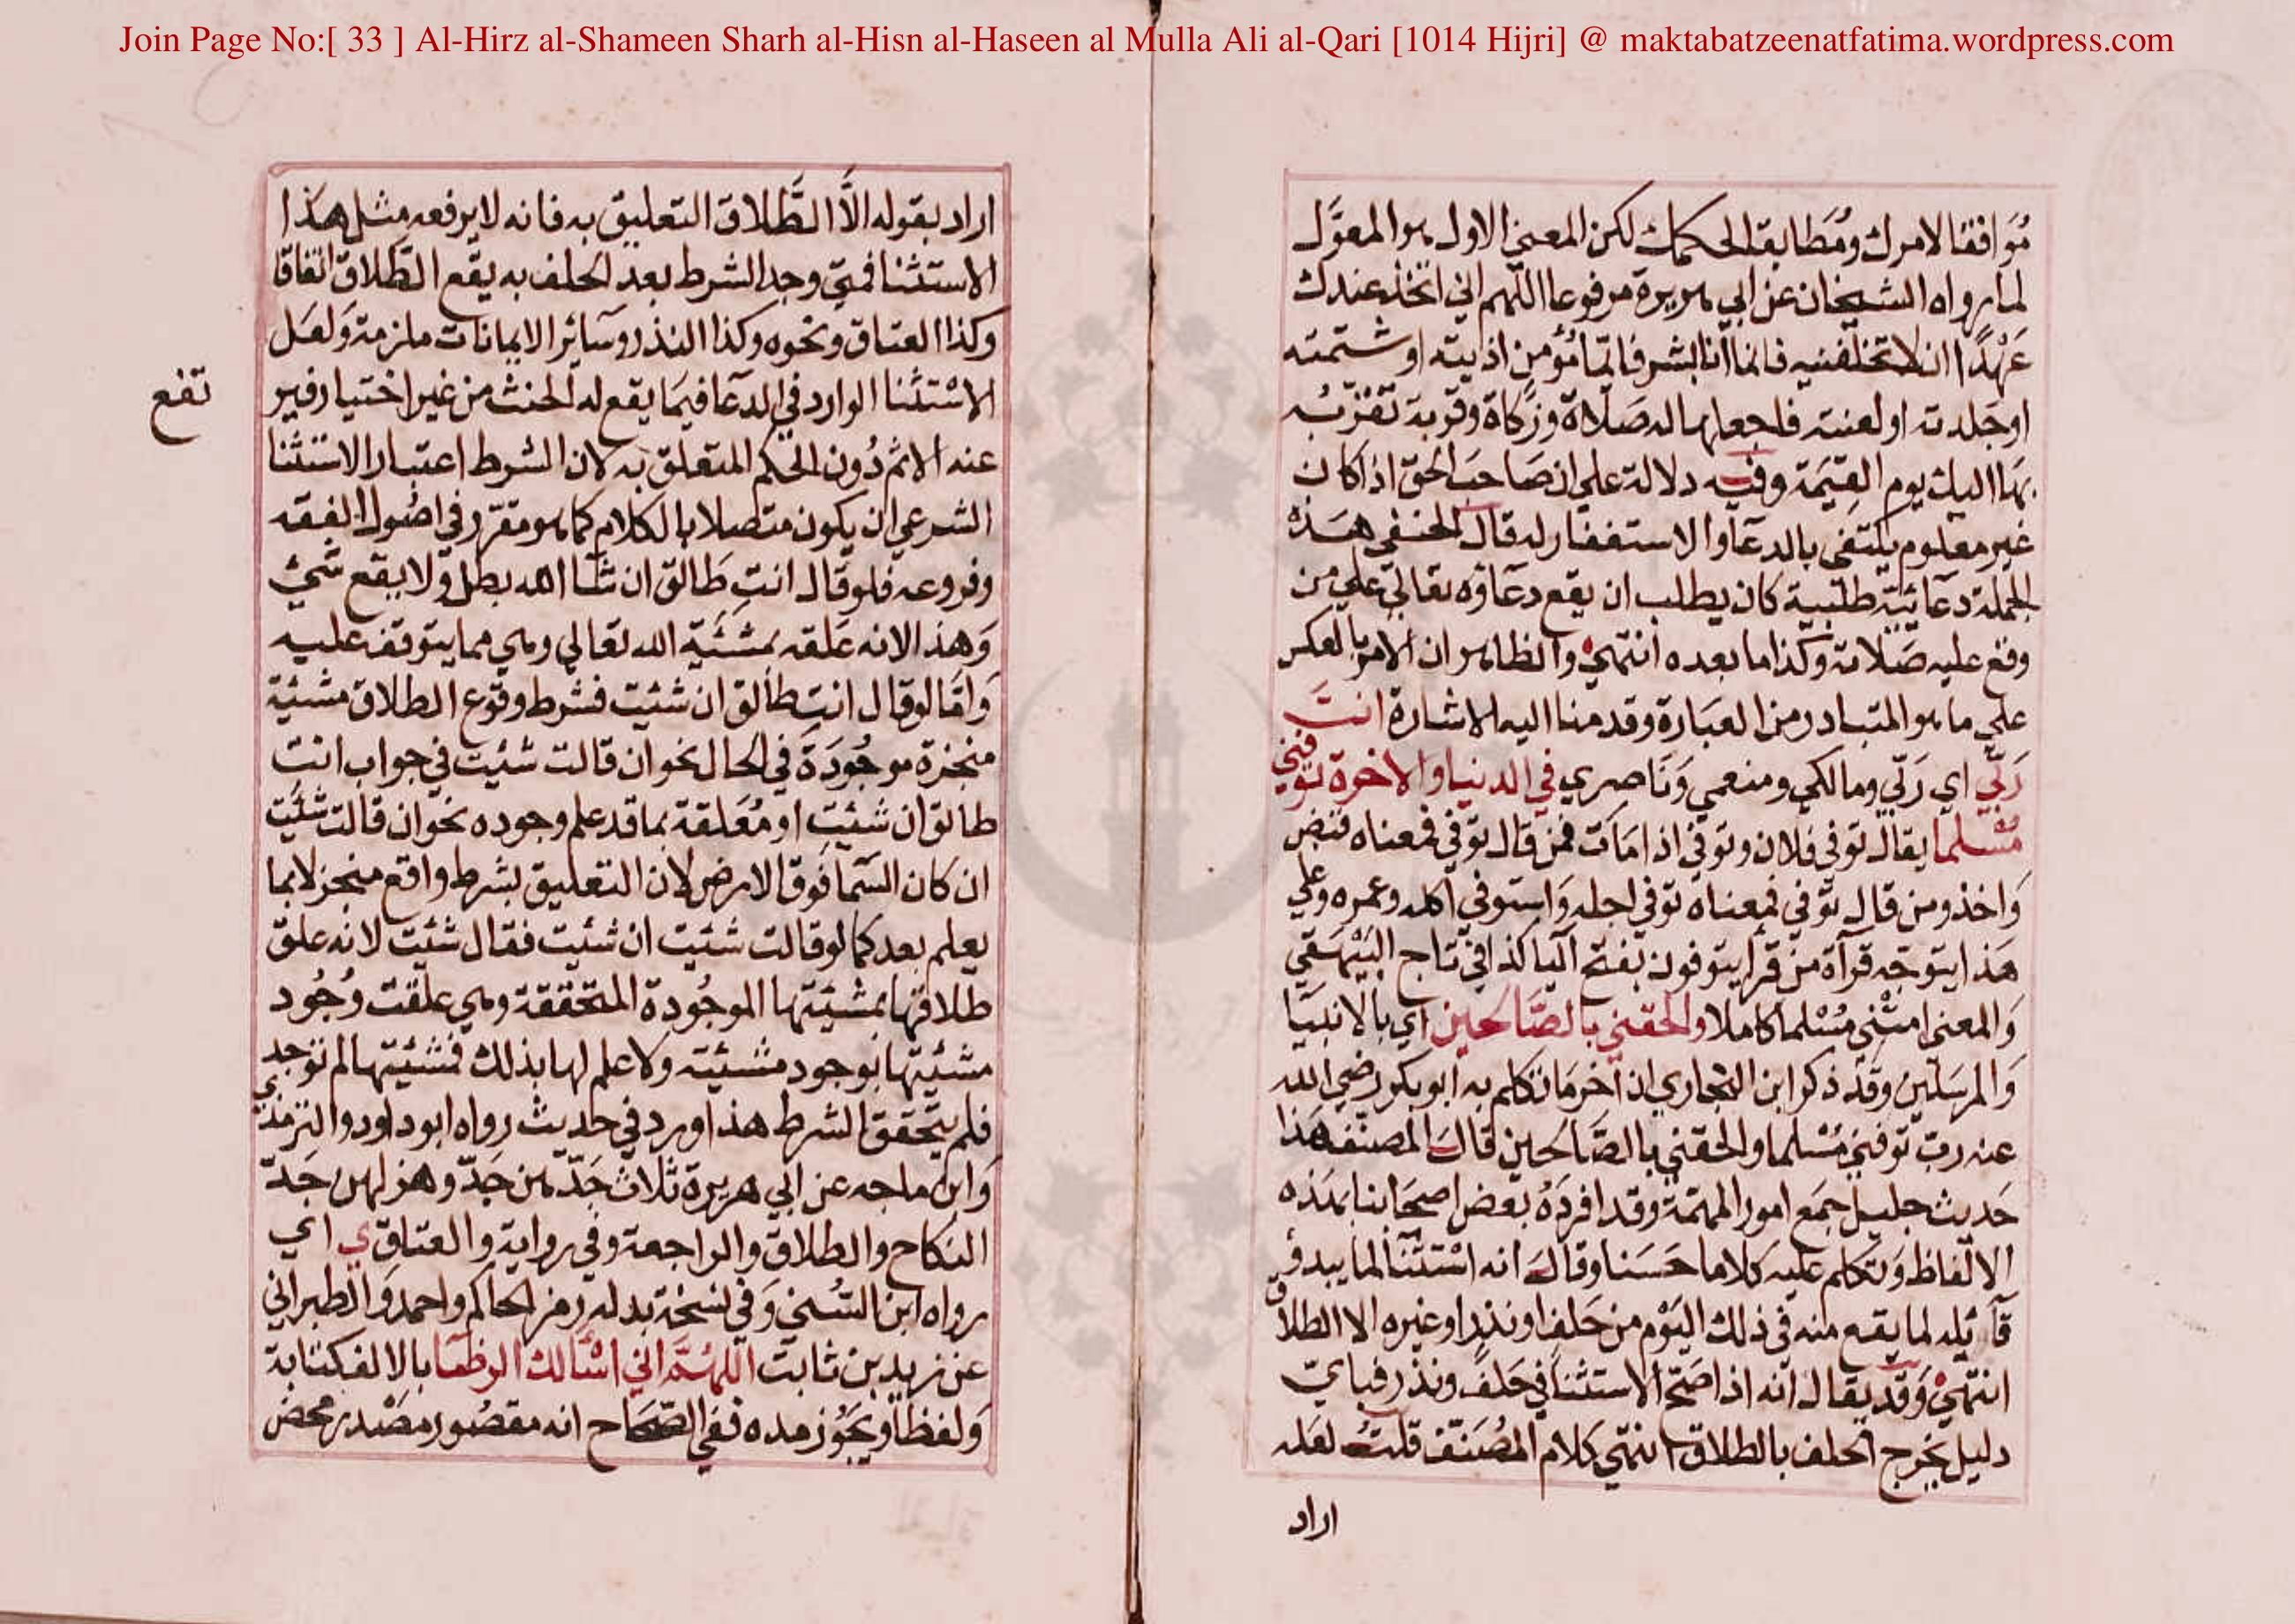 Join Page No:[ 33 ] Al-Hirz al-Shameen Sharh al-Hisn al-Haseen al Mulla Ali al-Qari [1014 Hijri] @ maktabatzeenatfatima.wordpress.com
مُوَافقا لامرك ومُطَابقا لحكمك لكن المعنى الاول هو المعوَّل
لما رواه الشيخان عن ابي هريرة مرفوعا اللهم اني اتخذ عندك
عَهْدًا ان لا تخلفنيه فانما انا بشر فايّما مُؤمن اذيته او شتمته
او جَلدته او لعنته فاجعلها له صَلاة وزكاة وقربة تقرّبُه
بهَا اليك يوم القِيٰمَة وفيه دلالة علي ان صَاحبَ الحق اذا كان
غير معلوم يكتفى بالدعآ والاستغفار له قال الحنفي هَذه
الجملة دعآئيّة طلبيية كان يطلب ان يقع دعآؤه تعالي علي من
وقع عليه صَلاته وكذا ما بعده انتهي والظاهر ان الامر بالعكس
علي ما هو المتبادر من العبَارة وقد منا اليه الاشارة انتَ
رَبّي اي رَبّي ومالكي ومنعمي وَنَاصري في الدنيا والاخرة توفني
مُسْلما يقال توفى فلان وتوفي اذا مَات فمن قال توفي فمعناه قبض
وَاخذ ومن قال توفي فمعناه توفي اجله وَاستوفي اكله وعمره وعلي
هَذا يتوجّه قرآة من قرأ يتوفون بفتح اليا كذا في تاج البَيْهَقي
وَالمعنى امتْني مُسْلما كاملا والحقني بالصَّالحين اي بالانبيَا
وَالمرسَلين وقد ذكر ابن البخاري ان آخر مَا تكلم به ابو بكر رضي الله
عنه رب توفني مُسْلما والحقني بالصَّالحين قال المصنّف هَذا
حَديث جليل جمَع امور المهمّة وقد افردَهُ بعض اصحَابنا بهَذه
الالفاظ وَتكلم عليه كلاما حَسَنا وقال انه اسْتثنآ لما يبدؤ
قآئله لما يقع منه في ذلك اليَوْم من حَلف او نذر او غيره الا الطلاق
انتهيْ وَقد يقال انه اذا صَحّ الاستثنا في حَلف ونذر فباي
دليل يخرج الحلف بالطلاق انتهي كلام المُصَنّف قلتُ لعَله
اراد
اراد بقوله الَّا الطَّلاق التعليق به فانه لا يرفعه مثل هَذا
الاستثنا فمتي وجد الشرط بعد الحلف به يقع الطَّلاق اتفاقا
وكذا العتاق ونحوه وكذا النذر وسَآئر الايمانات ملزمة وَلعَل
الاسْتثنا الوارد في الدعآ فيمَا يقع له الحنث من غير اختيار فير
تفع
عنه الاثم دُون الحكم المتعلق به لان الشرط اعتبار الاستثنا
الشرعي ان يكون متصلا بالكلام كما هو مقرّر في اصُول الفقه
وفروعه فلو قال انتِ طَالق ان شآ الله بطل ولا يقع شَيْ
وَهذا لانه عَلقه بمشئيّة الله تعالي وهي مما يتوقف عليه
وَامَّا لو قال انتِ طالق ان شئيت فشرط وقوع الطلاق مشئية
منجزة موجُودَة في الحال نحو ان قالت شئيت في جواب انت
طالق ان شئيت او مُعَلقة بما قد علم وجوده نحو ان قالت شئيت
ان كان السَّمآ فَوق الارض لان التعليق بشرط واقع منجز لا بما
يعلم بعد كما لو قالت شئيت ان شئيت فقال شئيت لانه علق
طلاقها بمشيّتها الموجُودة المتحققة وهي علقت وُجُود
مشئيّتها بوجود مشئيّته ولا علم لها بذلك فمشئيتها لم توجد
فلم يتحقق الشرط هذا وورد في حديث رواه ابو داود والترمذي
وَابن ماجه عن ابي هريرة ثلاث جَدّ هن جَدّ وهزلهن جَدّ
النكاح والطلاق والراجعة وفي رواية والعتاق ي اي
رواه ابن السُّني وَفي نسخة بدله رمز الحاكم واحمد وَالطبراني
عن زيد بن ثابت اللهُمَّ اني اسْألك الرضَا بالالف كتابة
وَلفظا ويَجُوز مده ففي الصّحَاح انه مقصُور مصْدر محض